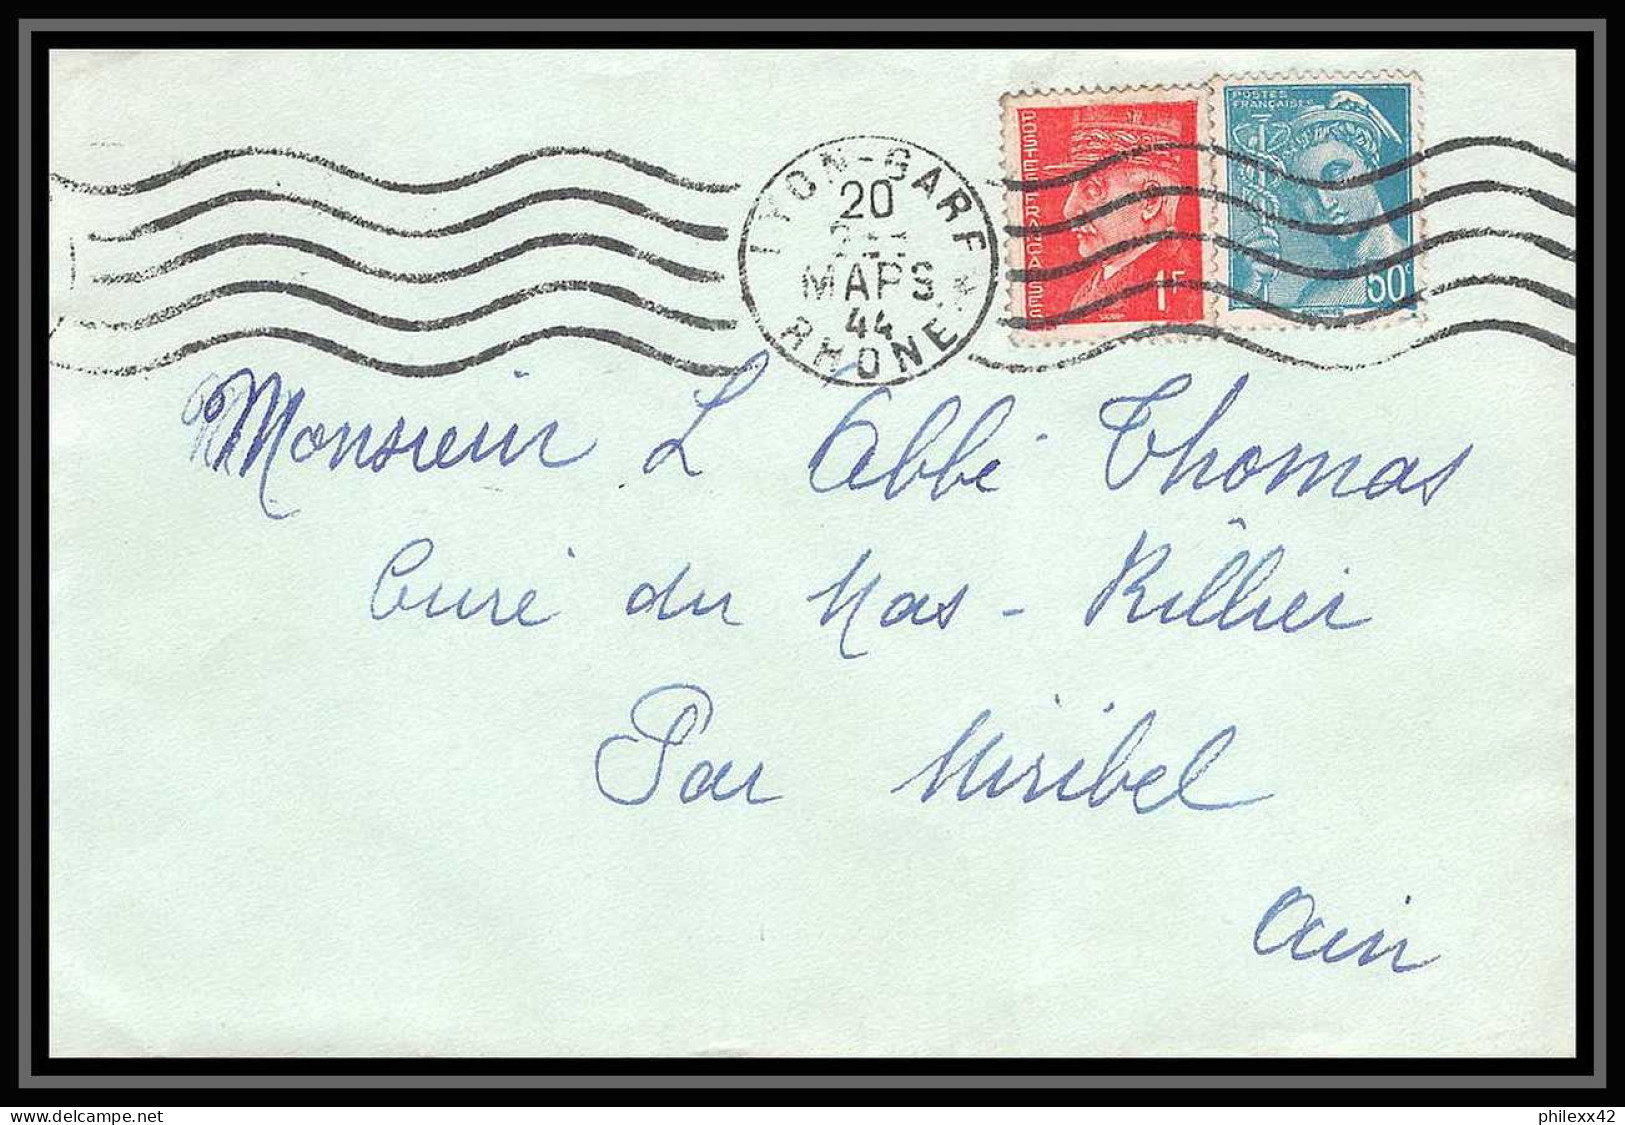 POSTES
FRANÇAISES
POSTES FRANÇAISES
1F
50c
LYON-GARE
20
MARS
44
RHONE
Monsieur L Abbé Thomas
Curé du Mas-Rillier
Par Miribel
Ain
philexx42